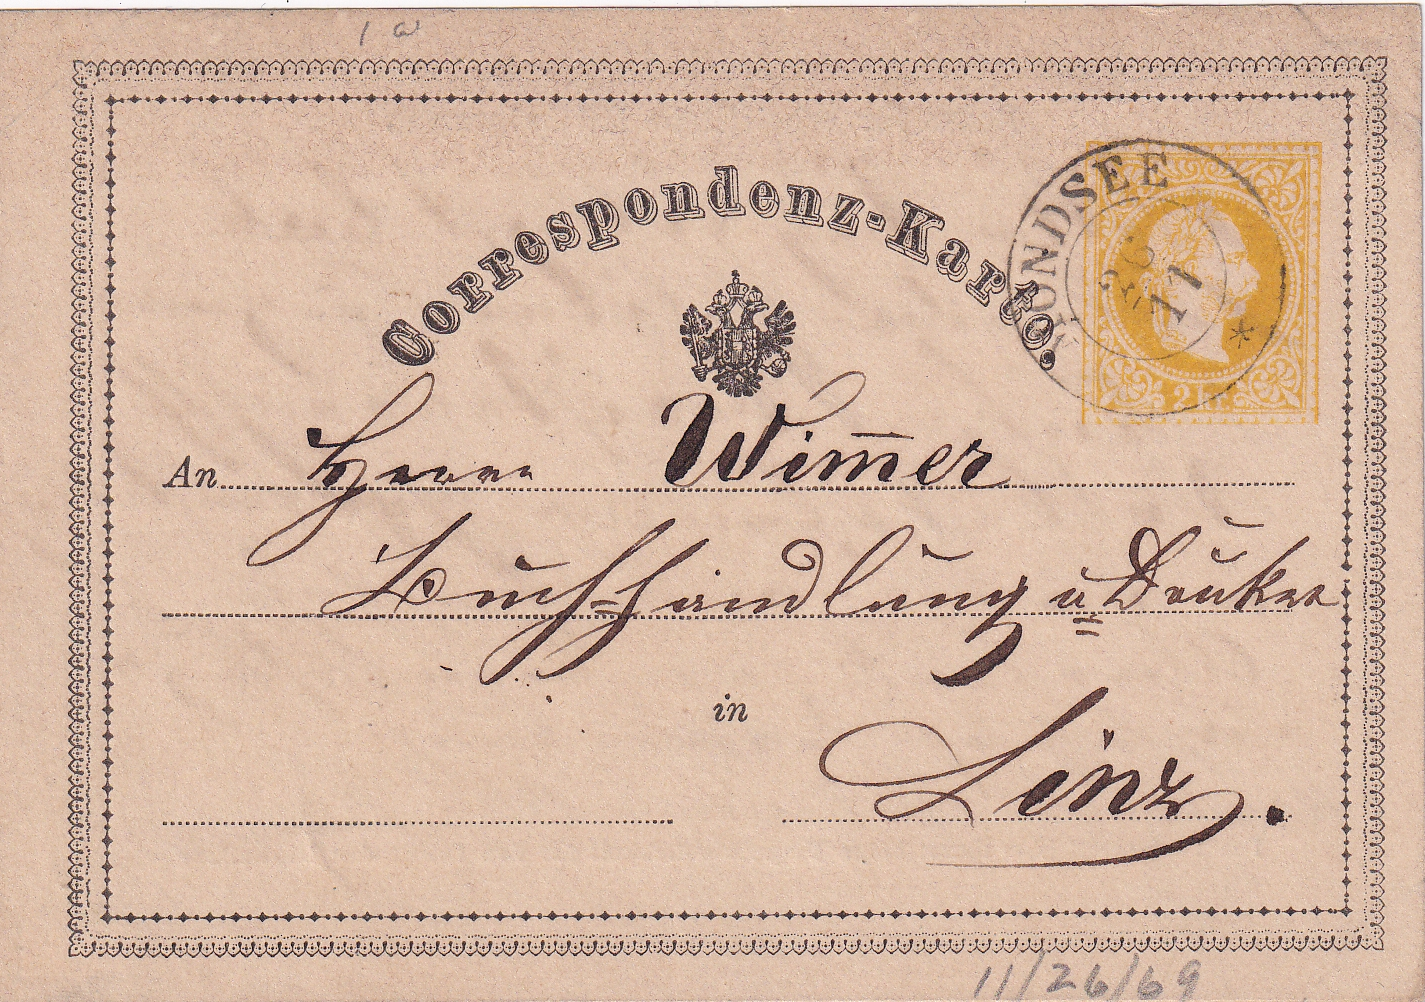 Correspondenz-Karte.
MONDSEE
26
11
*
2 Kr.
An Herrn Wim̅er
Buchhandlung u Druker
in
Linz.
11/26/69